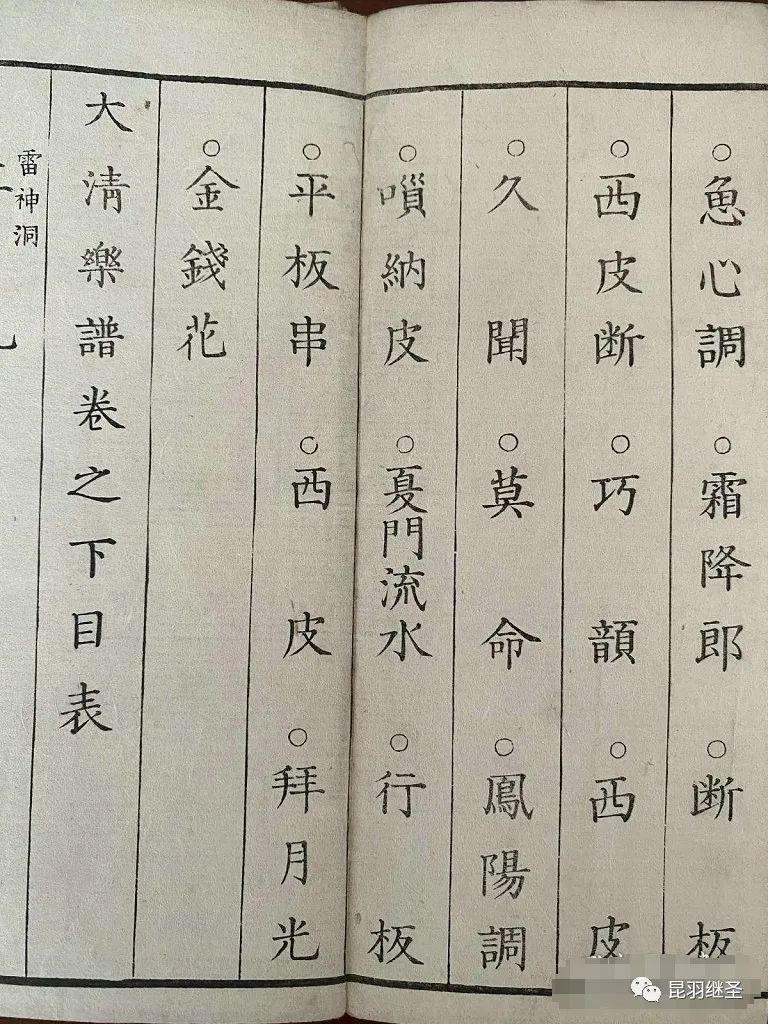 ○魚心調○霜降郎○断板
○西皮断○巧韻○西皮
○久聞○莫命○鳳陽調
○嗩納皮○戛門流水○行板
○平板串○西皮○拜月光
○金錢花
大清樂譜卷之下目表
雷神洞
昆羽继圣